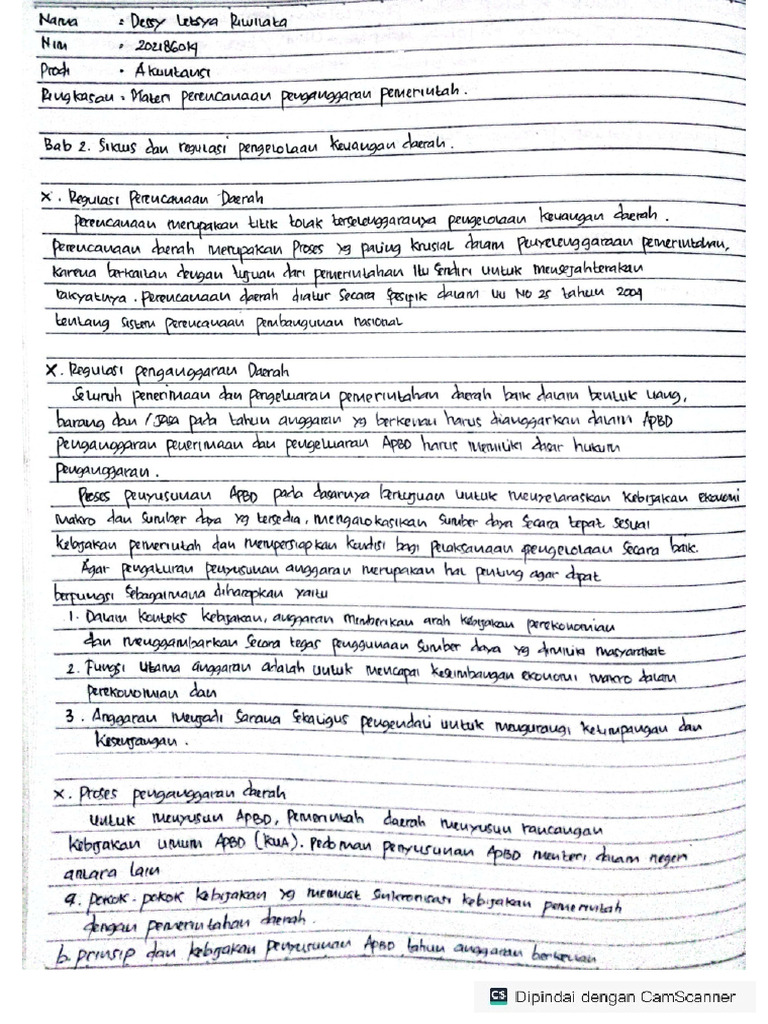 Nama : Dessy Letsya Riwinata
Nim : 202186019
Prodi : Akuntansi
Ringkasan : Materi perencanaan penganggaran pemerintah.
Bab 2. Siklus dan regulasi pengelolaan keuangan daerah.
x. Regulasi Perencanaan Daerah
Perencanaan merupakan titik tolak terselenggaranya pengelolaan keuangan daerah.
Perencanaan daerah merupakan Proses yg paling krusial dalam penyelenggaraan pemerintahan,
karena berkaitan dengan tujuan dari pemerintahan itu sendiri untuk mensejahterakan
rakyatnya. Perencanaan daerah diatur secara spesifik dalam UU No 25 tahun 2004
tentang sistem perencanaan pembangunan nasional
x. Regulasi penganggaran Daerah
Seluruh penerimaan dan pengeluaran pemerintahan daerah baik dalam bentuk uang,
barang dan / jasa pada tahun anggaran yg berkenan harus dianggarkan dalam APBD
penganggaran penerimaan dan pengeluaran APBD harus memiliki dasar hukum
penganggaran.
Proses penyusunan APBD pada dasarnya bertujuan untuk menyelaraskan kebijakan ekonomi
makro dan sumber daya yg tersedia, mengalokasikan sumber daya secara tepat sesuai
kebijakan pemerintah dan mempersiapkan kondisi bagi pelaksanaan pengelolaan secara baik.
Agar pengaturan penyusunan anggaran merupakan hal penting agar dapat
berfungsi sebagaimana diharapkan yaitu
1. Dalam konteks kebijakan, anggaran memberikan arah kebijakan perekonomian
dan menggambarkan secara tegas penggunaan sumber daya yg dimiliki masyarakat
2. Fungsi utama anggaran adalah untuk mencapai keseimbangan ekonomi makro dalam
perekonomian dan
3. Anggaran menjadi sarana sekaligus pengendali untuk mengurangi ketimpangan dan
kesenjangan.
x. Proses penganggaran daerah
untuk menyusun APBD, pemerintah daerah menyusun rancangan
kebijakan umum APBD (KUA). pedoman penyusunan APBD menteri dalam negeri
antara lain
a. pokok-pokok kebijakan yg memuat sinkronisasi kebijakan pemerintah
dengan pemerintahan daerah.
b. prinsip dan kebijakan penyusunan APBD tahun anggaran berkenan
CS Dipindai dengan CamScanner